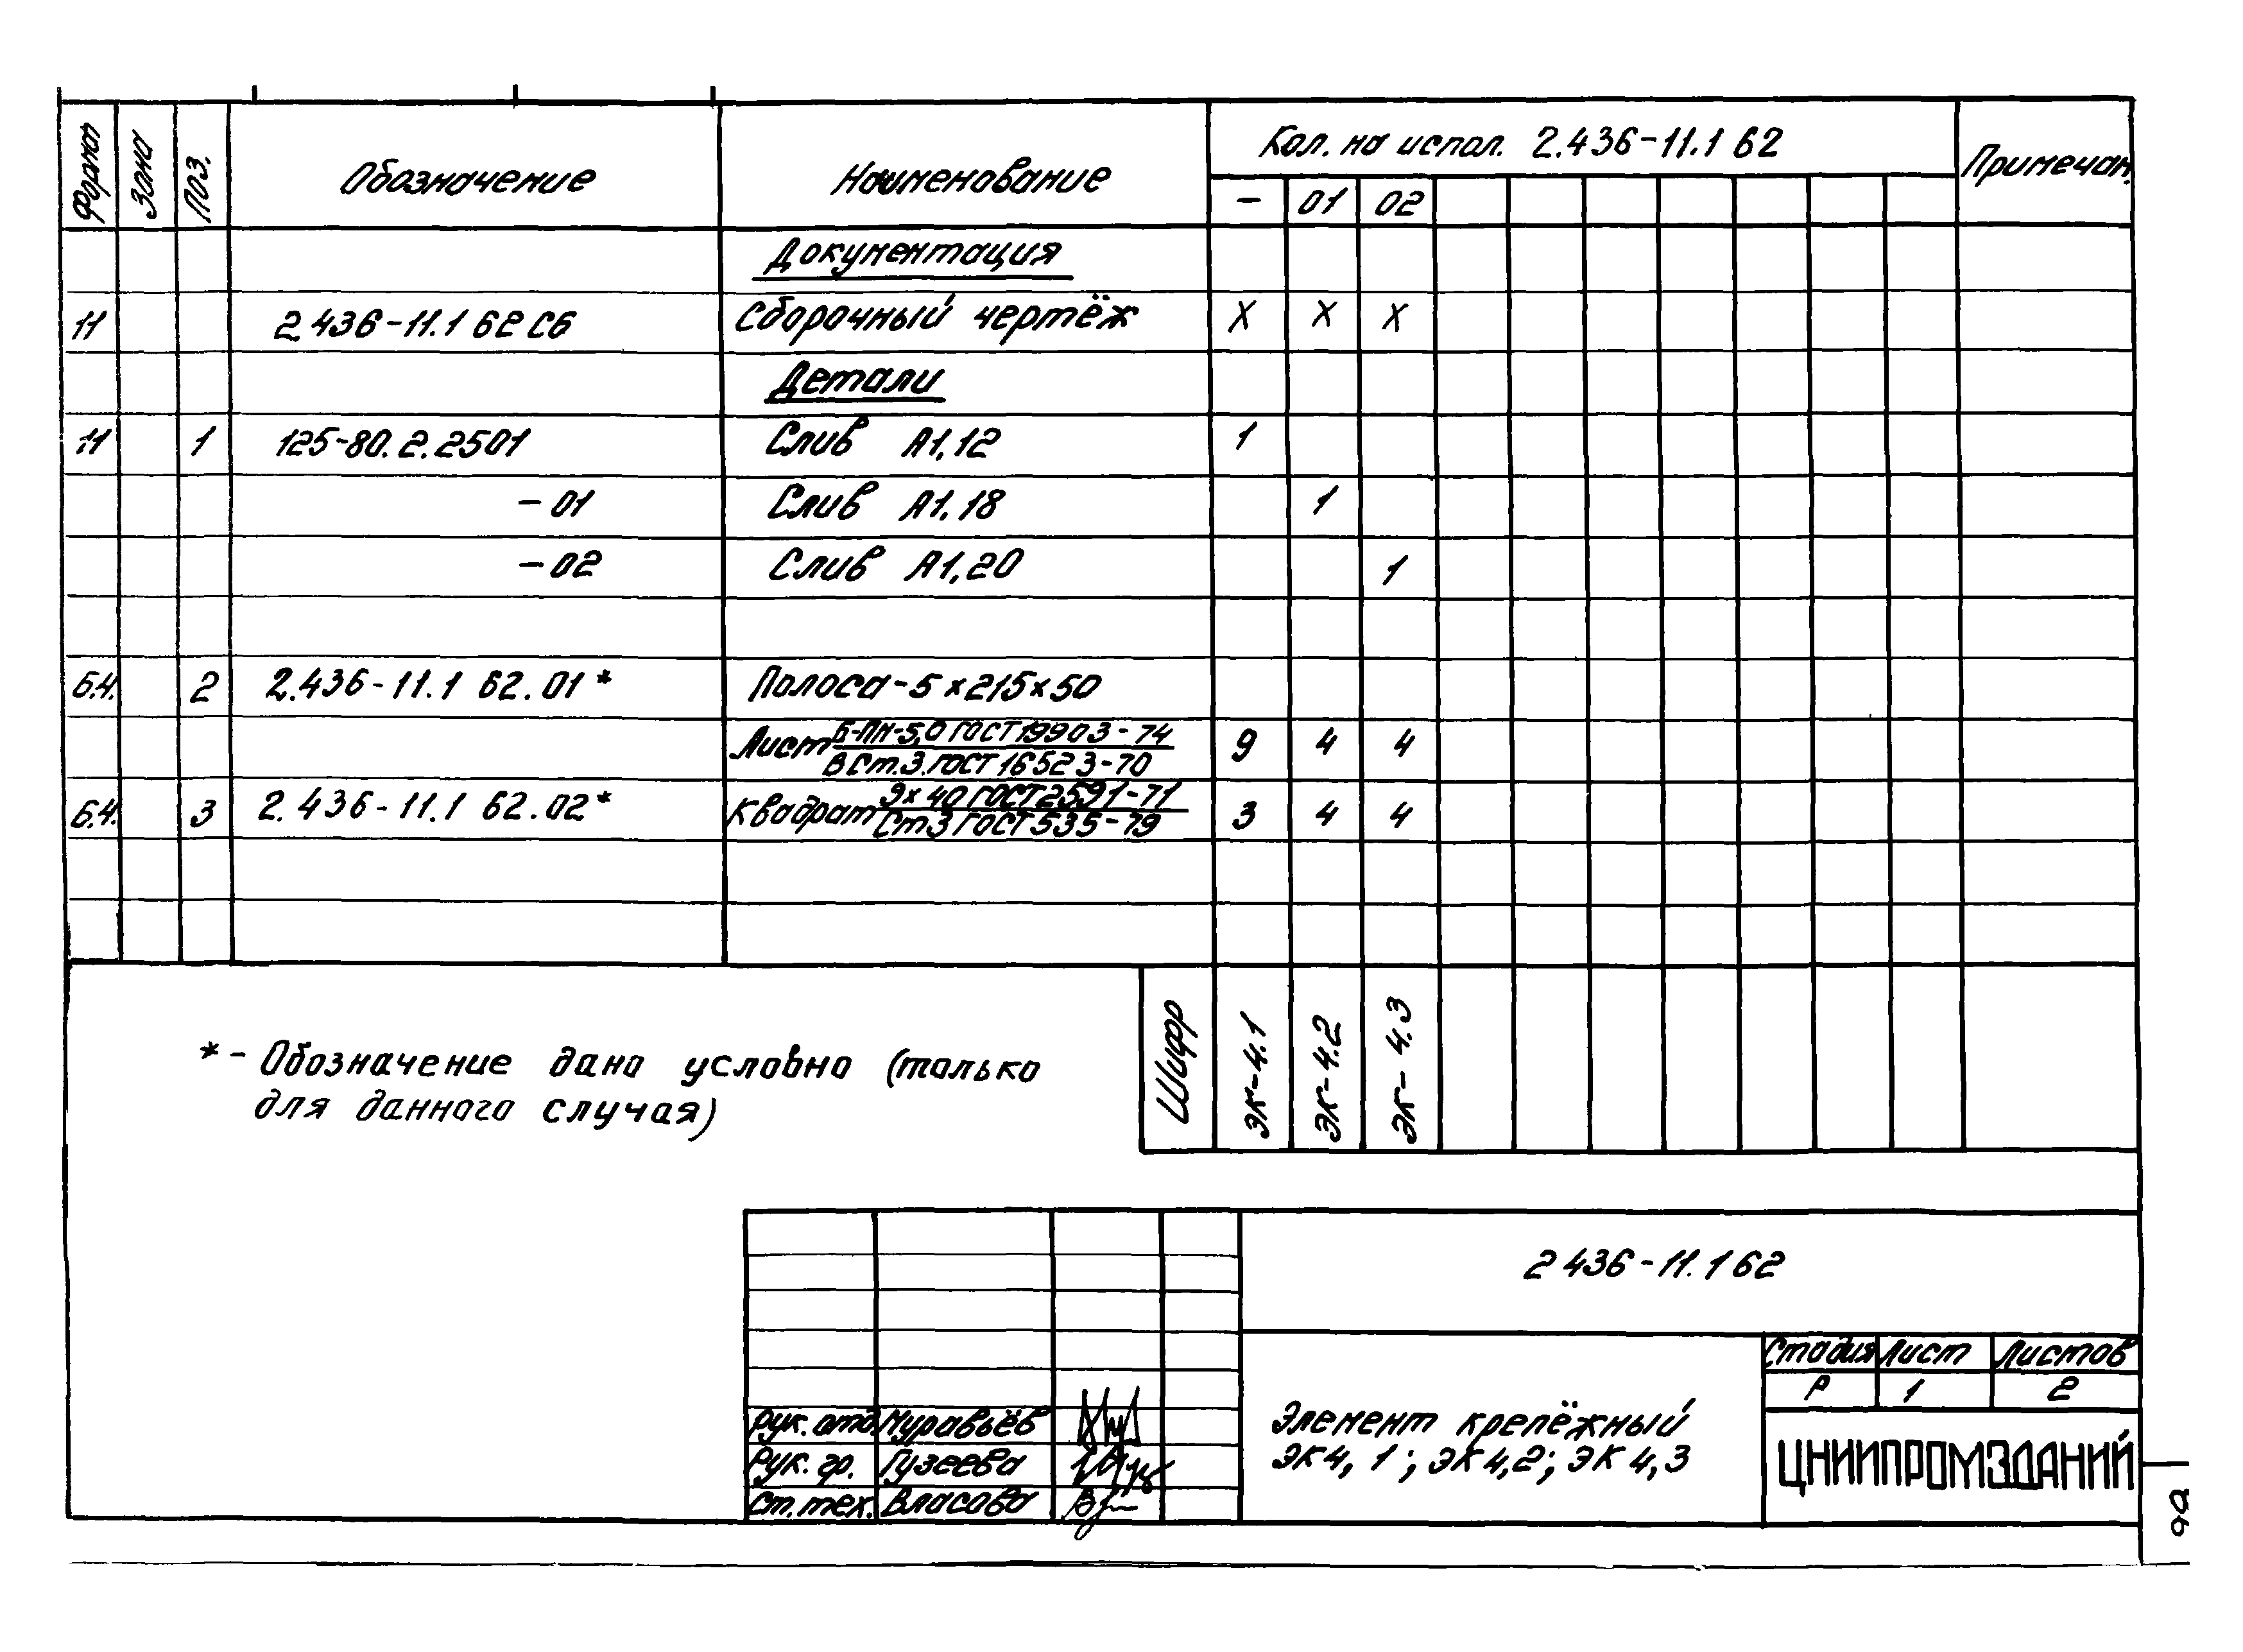 Формат Зона Поз. Обозначение Наименование Кол. на испол. 2.436-11.1 62 Примечан.
- 01 02
Документация
11 2.436-11.1 62 СБ Сборочный чертёж X X X
Детали
11 1 125-80.2.2501 Слив А1,12 1
-01 Слив А1.18 1
-02 Слив А1,20 1
Б.Ч. 2 2.436-11.1 62.01* Полоса-5х215х50
Лист Б-ПН-5,0 ГОСТ 19903-74 9 4 4
ВСт.3.ГОСТ 16523-70
Б.Ч. 3 2.436-11.1 62.02* Квадрат 9х40 ГОСТ 2591-71 3 4 4
Ст3 ГОСТ 535-79
Шифр ЭК-4.1 ЭК-4.2 ЭК-4.3
*- Обозначение дано условно (только
для данного случая)
2 436-11.1 62
Стадия Лист Листов
Р 1 2
Рук. отд. Муравьёв
Рук. гр. Гузеева
Ст. тех. Власова
Элемент крепёжный
ЭК4,1; ЭК4,2; ЭК4,3
ЦНИИПРОМЗДАНИЙ